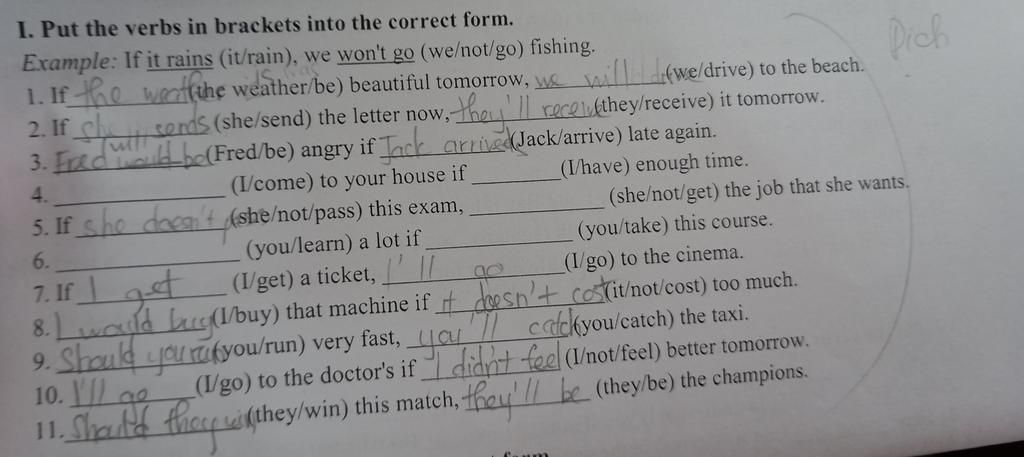 I. Put the verbs in brackets into the correct form.
Example: If it rains (it/rain), we won't go (we/not/go) fishing.
1. If the weather (the weather/be) beautiful tomorrow, we will (we/drive) to the beach.
2. If she sends (she/send) the letter now, they'll receive (they/receive) it tomorrow.
3. Fred would be (Fred/be) angry if Jack arrived (Jack/arrive) late again.
4. ____________ (I/come) to your house if ________ (I/have) enough time.
5. If she doesn't (she/not/pass) this exam, ____________ (she/not/get) the job that she wants.
6. ____________ (you/learn) a lot if ____________ (you/take) this course.
7. If I get (I/get) a ticket, I'll go (I/go) to the cinema.
8. I would buy (I/buy) that machine if it doesn't cost (it/not/cost) too much.
9. Should you run (you/run) very fast, you'll catch (you/catch) the taxi.
10. I'll go (I/go) to the doctor's if I didn't feel (I/not/feel) better tomorrow.
11. Should they win (they/win) this match, they'll be (they/be) the champions.